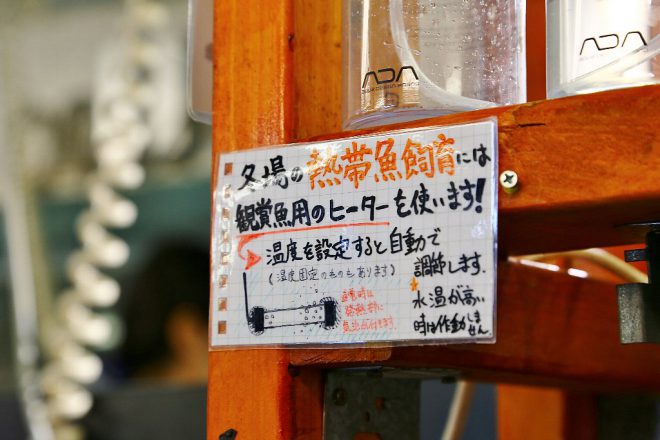 ADA
ADA
冬場の熱帯魚飼育には
観賞魚用のヒーターを使います!
温度を設定すると自動で
(温度固定のものもあります)
調節します.
水温が高い
時は作動しません.
通電時は
気泡が付きます.